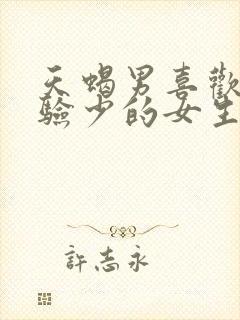 天蠍男喜歡
驗少的女生
許志永